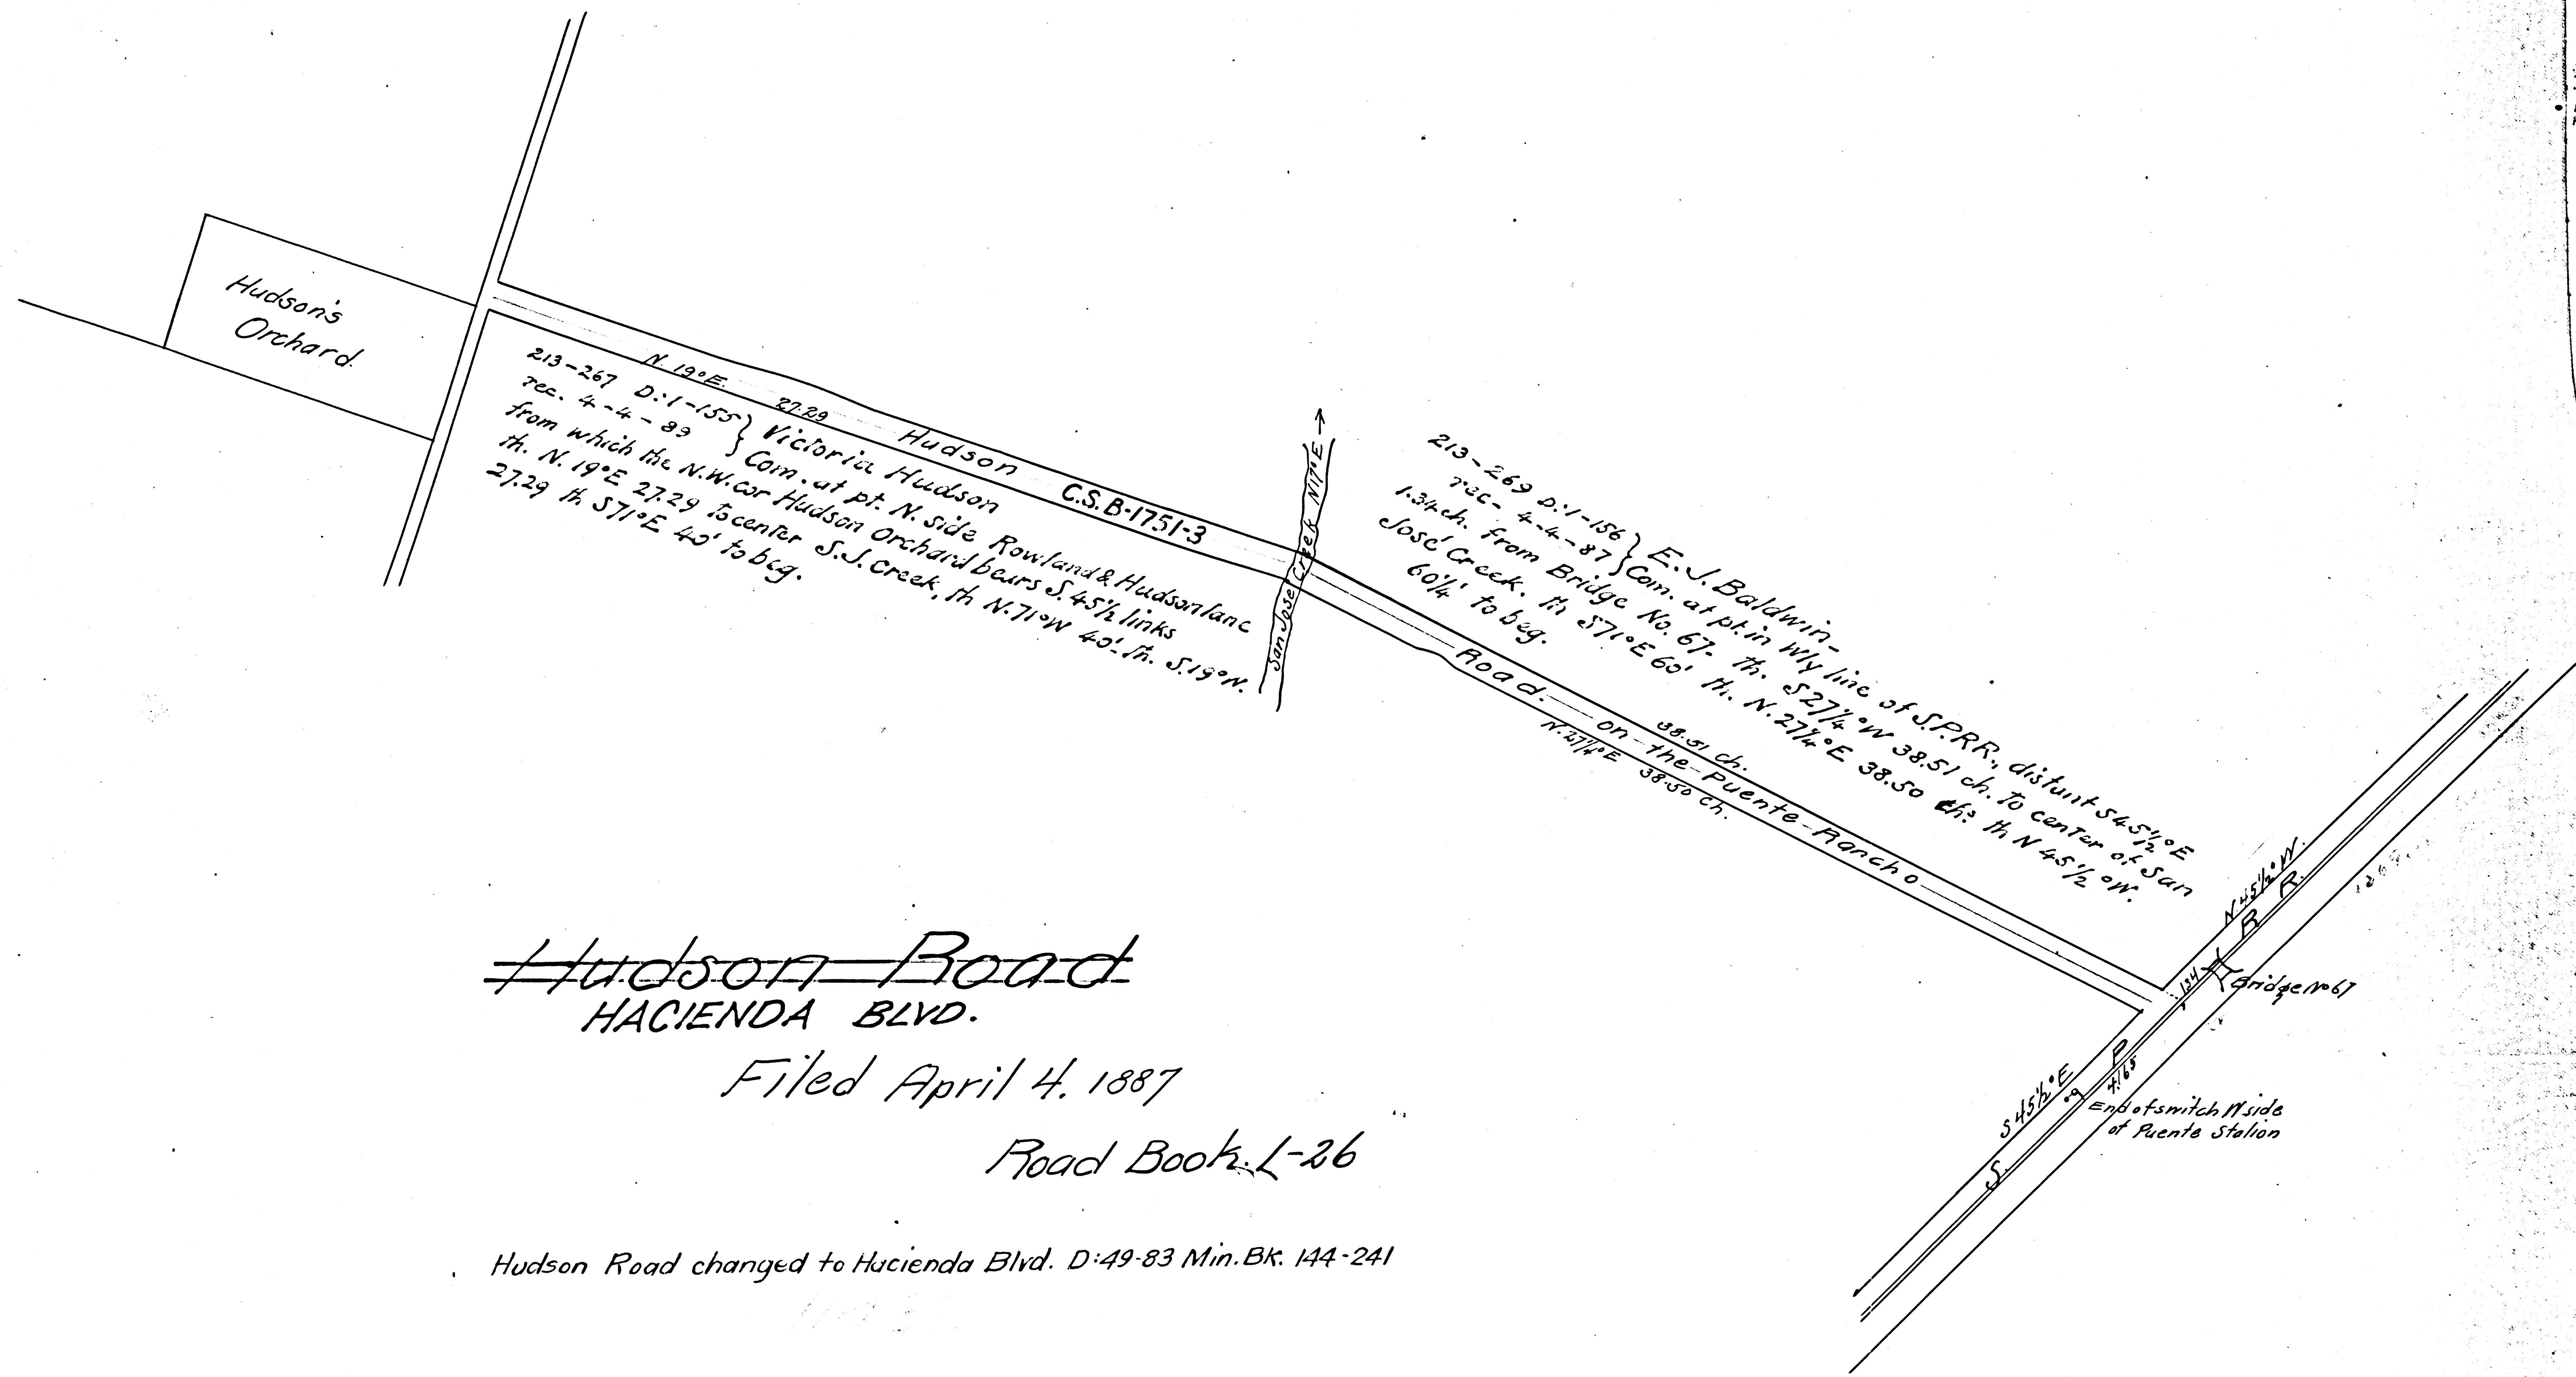 Hudson's
Orchard.
N. 19°E. 27.29
Hudson
C.S. B-1751-3
213-267 D:1-155 } Victoria Hudson
rec. 4-4-89 } Com. at pt. N. side Rowland & Hudson lane
from which the N.W. cor Hudson Orchard bears S. 45½ links
th. N. 19°E 27.29 to center S.J. Creek, th N. 71°W 40' th. S. 19°W.
27.29 th S71°E 40' to beg.
San Jose Creek N17°E →
213-269 D:1-156 } E. J. Baldwin-
rec- 4-4-87 } Com. at pt. in Wly line of S.P.RR., distant S45½°E
1.34 ch. from Bridge No. 67- th. S27¼°W 38.51 ch. To center of San
José Creek. th S71°E 60' th. N. 27¼°E 38.50 chs th N 45½°W.
60¼' to beg.
Road. - on - the - Puente - Rancho
38.51 ch.
N. 27¼°E 38.50 Ch.
N 45½°W.
S. P. R. R.
134
Bridge No 67
S 45½°E
4.165
End of switch N side
of Puente Station
Hudson Road
HACIENDA BLVD.
Filed April 4. 1887
Road Book. L-26
Hudson Road changed to Hacienda Blvd. D:49-83 Min. Bk. 144-241